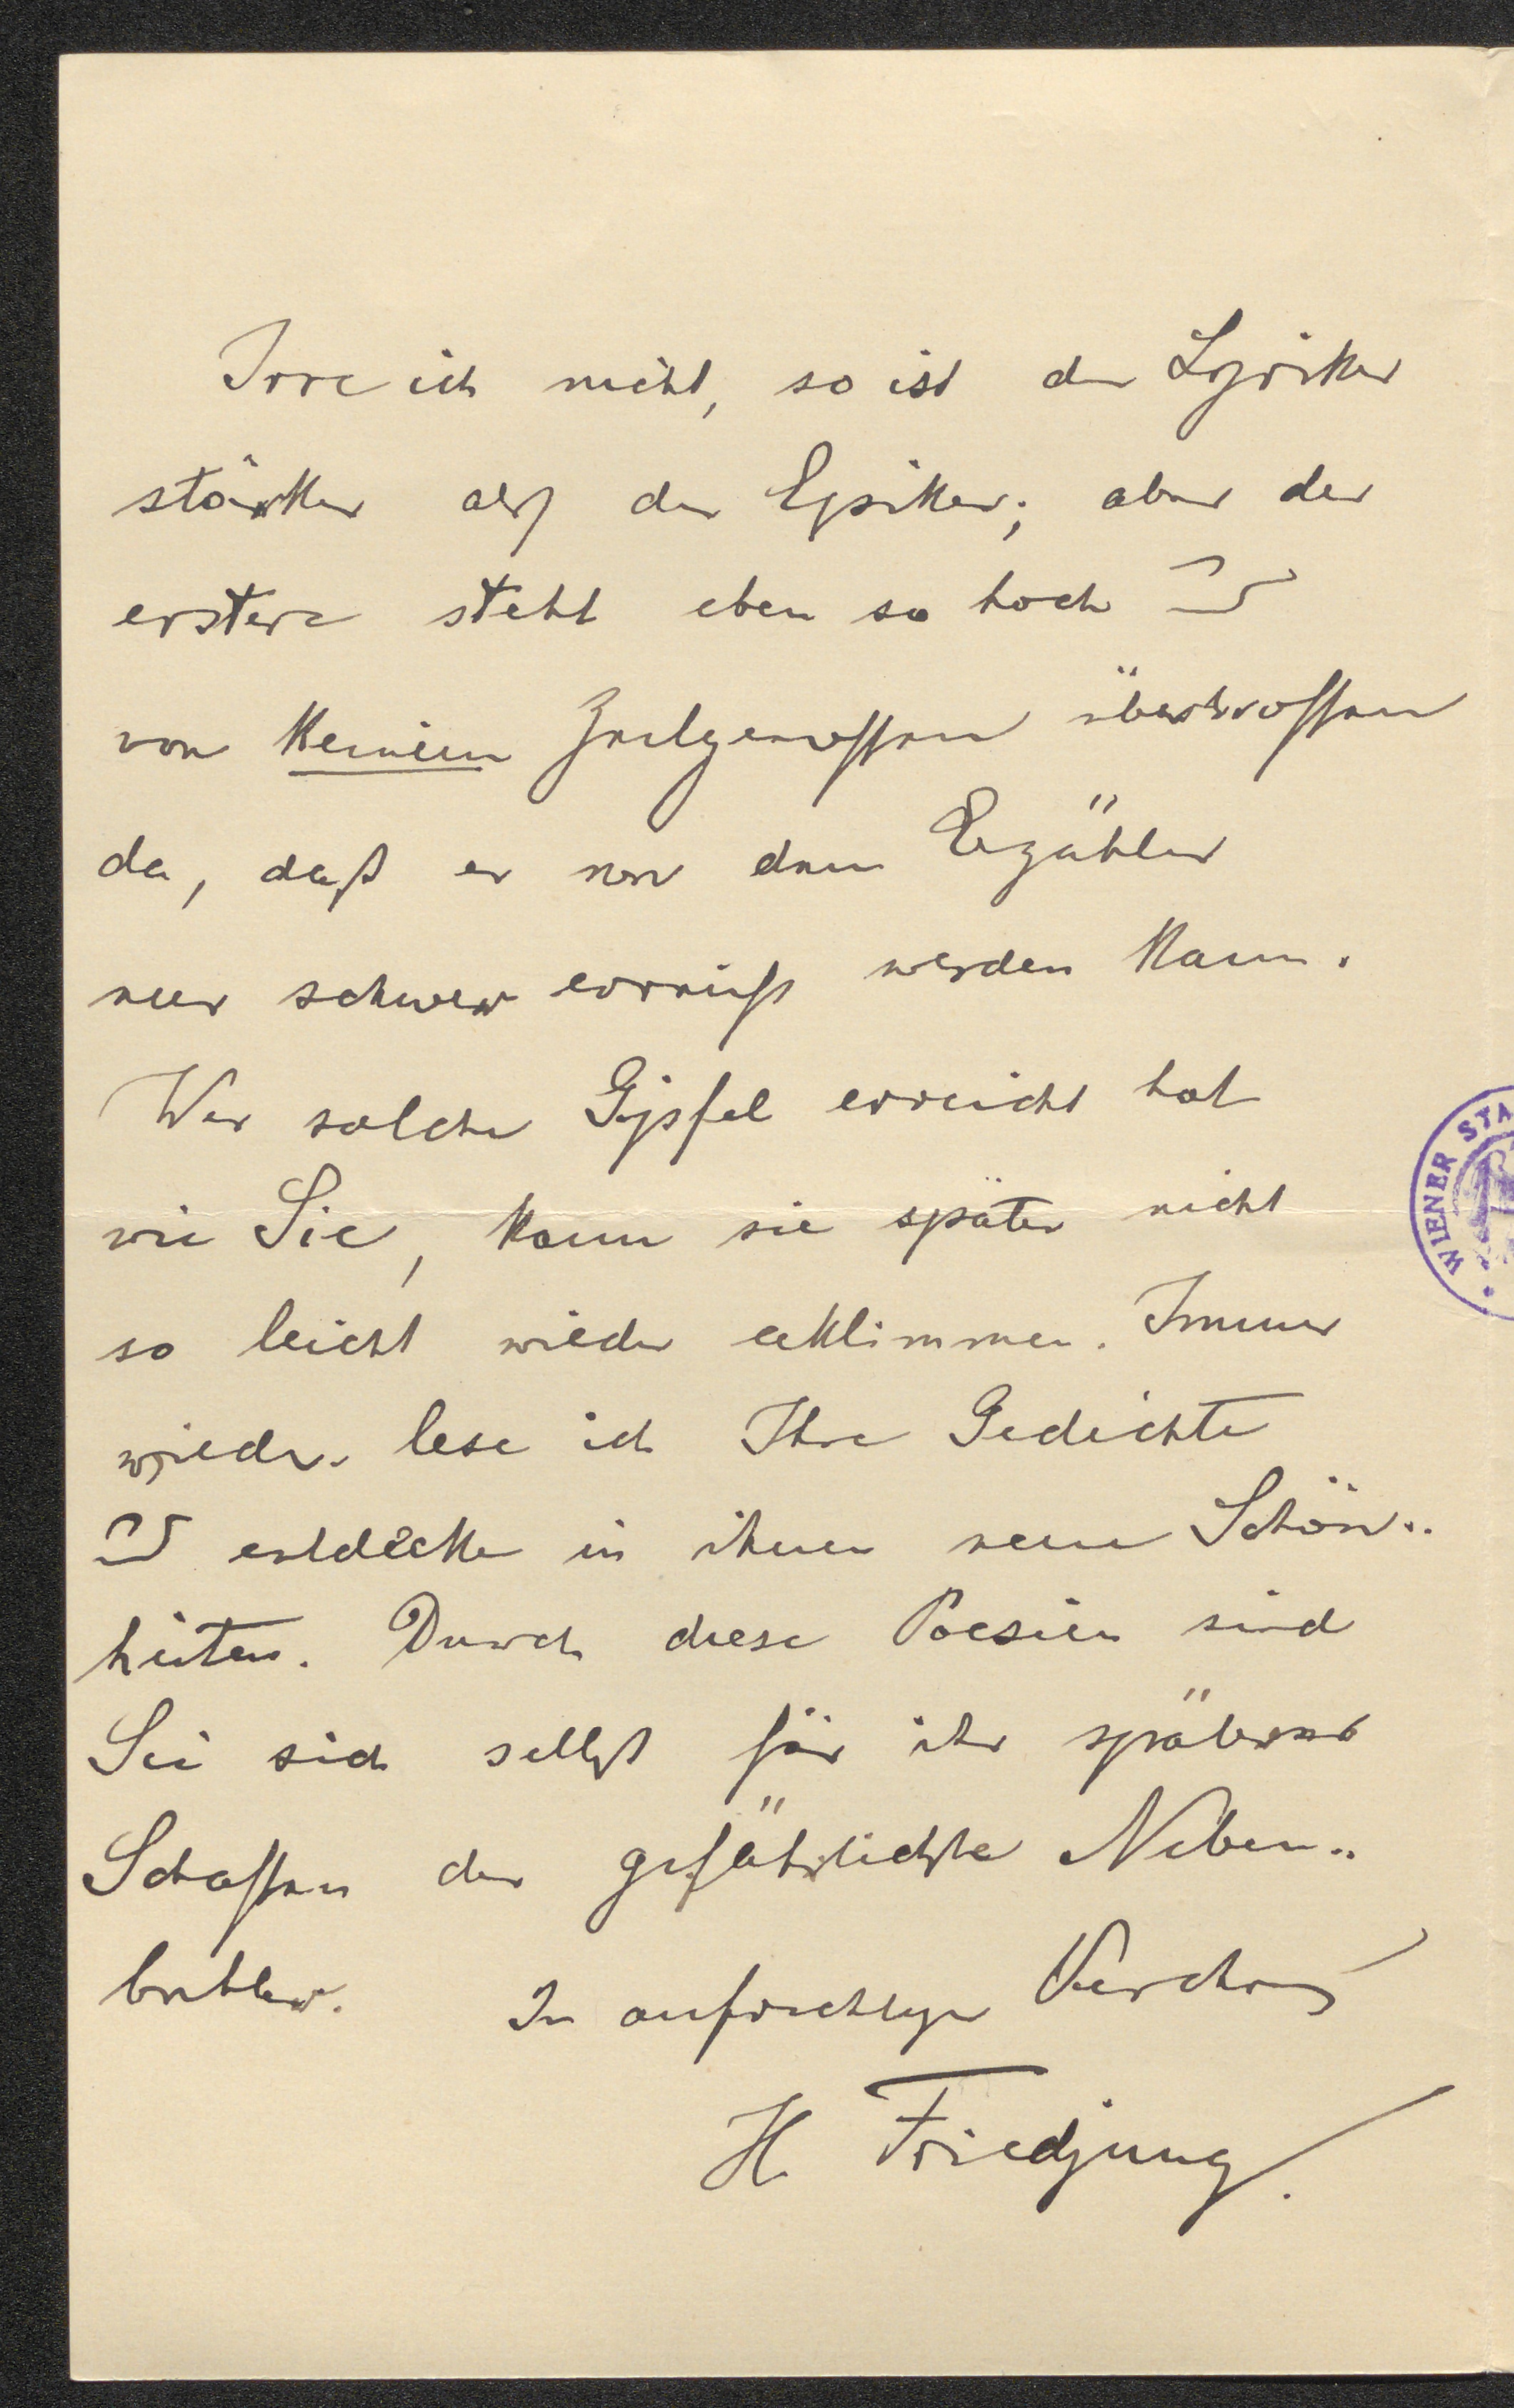 Irre ich nicht, so ist der Lyriker
stärker als der Epiker; aber der
erstere steht eben so hoch u
von keinem Zeitgenossen übertroffen
da, daß er von dem Erzähler
nur schwer erreicht werden kann.
Wer solche Gipfel erreicht hat
wie Sie, kann sie später nicht
so leicht wieder erklimmen. Immer
wieder lese ich Ihre Gedichte
u entdecke in ihnen neue Schön-
heiten. Durch diese Poesien sind
Sie sich selbst für ihr späteres
Schaffen der gefährlichste Neben-
buhler. In aufrichtiger Verehrung
H. Friedjung.
WIENER STA